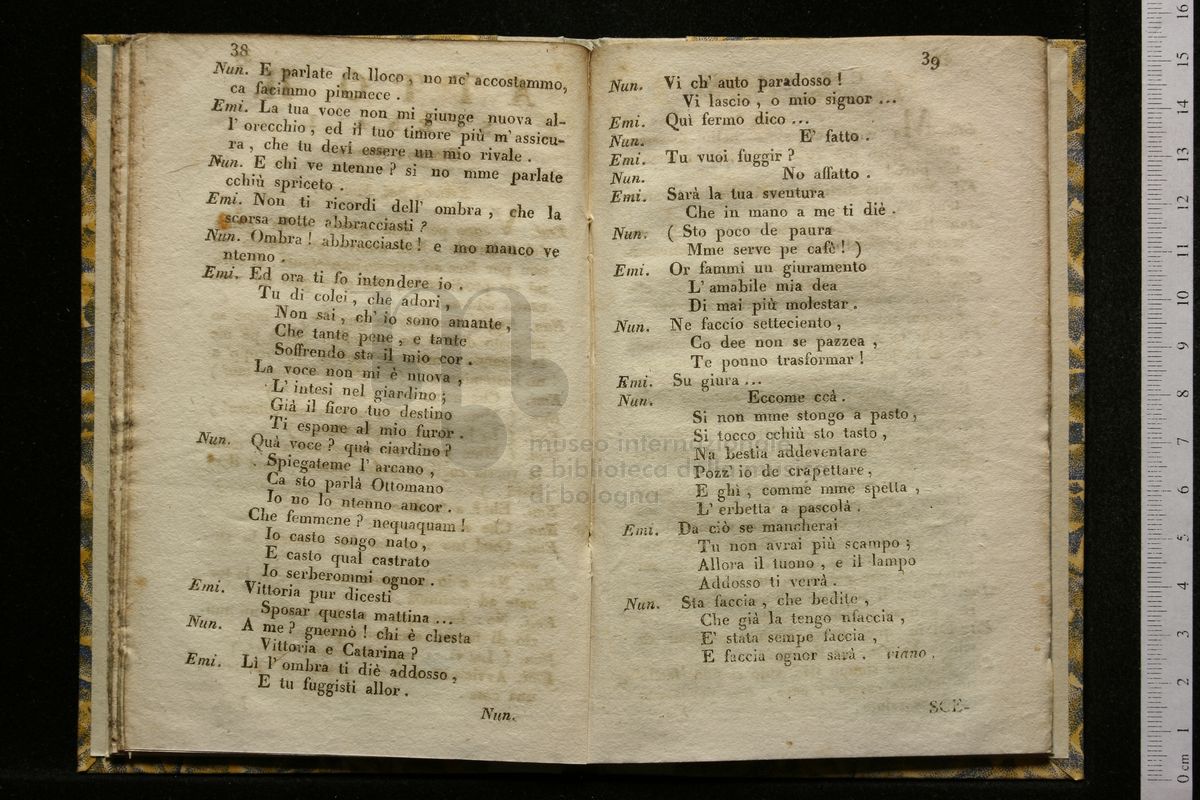 38
Nun. E parlate da lloco, no nc' accostammo,
ca facimmo pimmece.
Emi. La tua voce non mi giunge nuova al-
l' orecchio, ed il tuo timore più m' assicu-
ra, che tu devi essere un mio rivale.
Nun. E chi ve ntenne? si no mme parlate
cchiù spriceto.
Emi. Non ti ricordi dell' ombra, che la
scorsa notte abbracciasti?
Nun. Ombra! abbracciaste! e mo manco ve
ntenno.
Emi. Ed ora ti fo intendere io.
Tu di colei, che adori,
Non sai, ch' io sono amante,
Che tante pene, e tante
Soffrendo sta il mio cor.
La voce non mi è nuova,
L' intesi nel giardino;
Già il fiero tuo destino
Ti espone al mio furor.
Nun. Quà voce? quà ciardino?
Spiegateme l' arcano,
Ca sto parlà Ottomano
Io no lo ntenno ancor.
Che femmene? nequaquam!
Io casto songo nato,
E casto qual castrato
Io serberommi ognor.
Emi. Vittoria pur dicesti
Sposar questa mattina...
Nun. A me? gnernò! chi è chesta
Vittoria e Catarina?
Emi. Lì l' ombra ti diè addosso,
E tu fuggisti allor.
Nun.
39
Nun. Vi ch' auto paradosso!
Vi lascio, o mio signor...
Emi. Quì fermo dico...
Nun. E' fatto.
Emi. Tu vuoi fuggir?
Nun. No affatto.
Emi. Sarà la tua sventura
Che in mano a me ti diè.
Nun. (Sto poco de paura
Mme serve pe cafè!)
Emi. Or fammi un giuramento
L' amabile mia dea
Di mai più molestar.
Nun. Ne faccio setteciento,
Co dee non se pazzea,
Te ponno trasformar!
Emi. Su giura...
Nun. Eccome ccà.
Si non mme stongo a pasto,
Si tocco cchiù sto tasto,
Na bestia addeventare
Pozz' io de crapettare,
E ghì, comme mme spetta,
L' erbetta a pascolà.
Emi. Da ciò se mancherai
Tu non avrai più scampo;
Allora il tuono, e il lampo
Addosso ti verrà.
Nun. Sta faccia, che bedite,
Che già la tengo nfaccia,
E' stata sempe faccia,
E faccia ognor sarà. viano.
SCE-
museo internazionale
e biblioteca della musica
di bologna